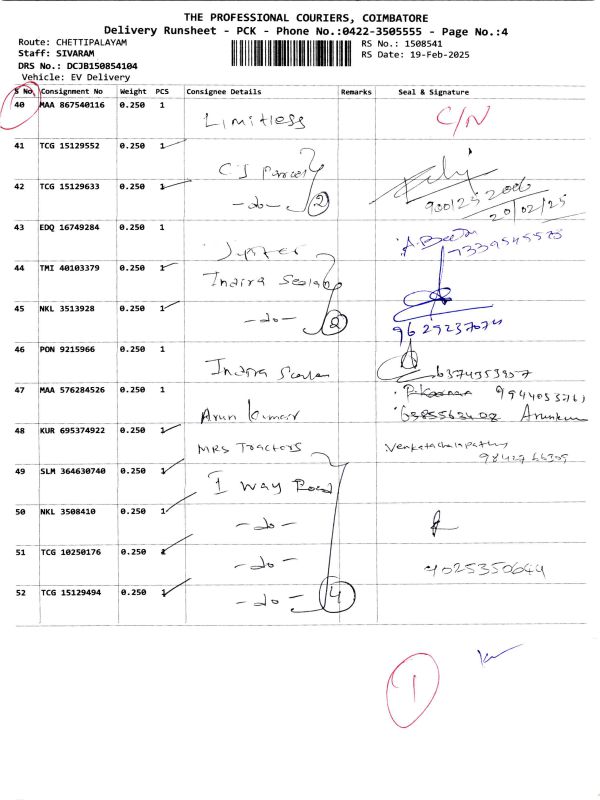 THE PROFESSIONAL COURIERS, COIMBATORE
Delivery Runsheet - PCK - Phone No.:0422-3505555 - Page No.:4
Route: CHETTIPALAYAM
RS No.: 1508541
Staff: SIVARAM
RS Date: 19-Feb-2025
DRS No.: DCJB150854104
Vehicle: EV Delivery
S No. Consignment No Weight PCS Consignee Details Remarks Seal & Signature
40 MAA 867540116 0.250 1 Limitless C/N
41 TCG 15129552 0.250 1 CJ
42 TCG 15129633 0.250 1 -do- 2
20/02/25
43 EDQ 16749284 0.250 1 Jupiter
44 TMI 40103379 0.250 1 Indira
45 NKL 3513928 0.250 1 -do- 2
46 PON 9215966 0.250 1 Indira 6374353957
47 MAA 576284526 0.250 1 Arun Kumar
48 KUR 695374922 0.250 1 MRS Tractors Venkatachalapathy
49 SLM 364630740 0.250 1 1 Way Road
50 NKL 3508410 0.250 1 -do-
51 TCG 10250176 0.250 1 -do- 9025350644
52 TCG 15129494 0.250 1 -do- 4
1